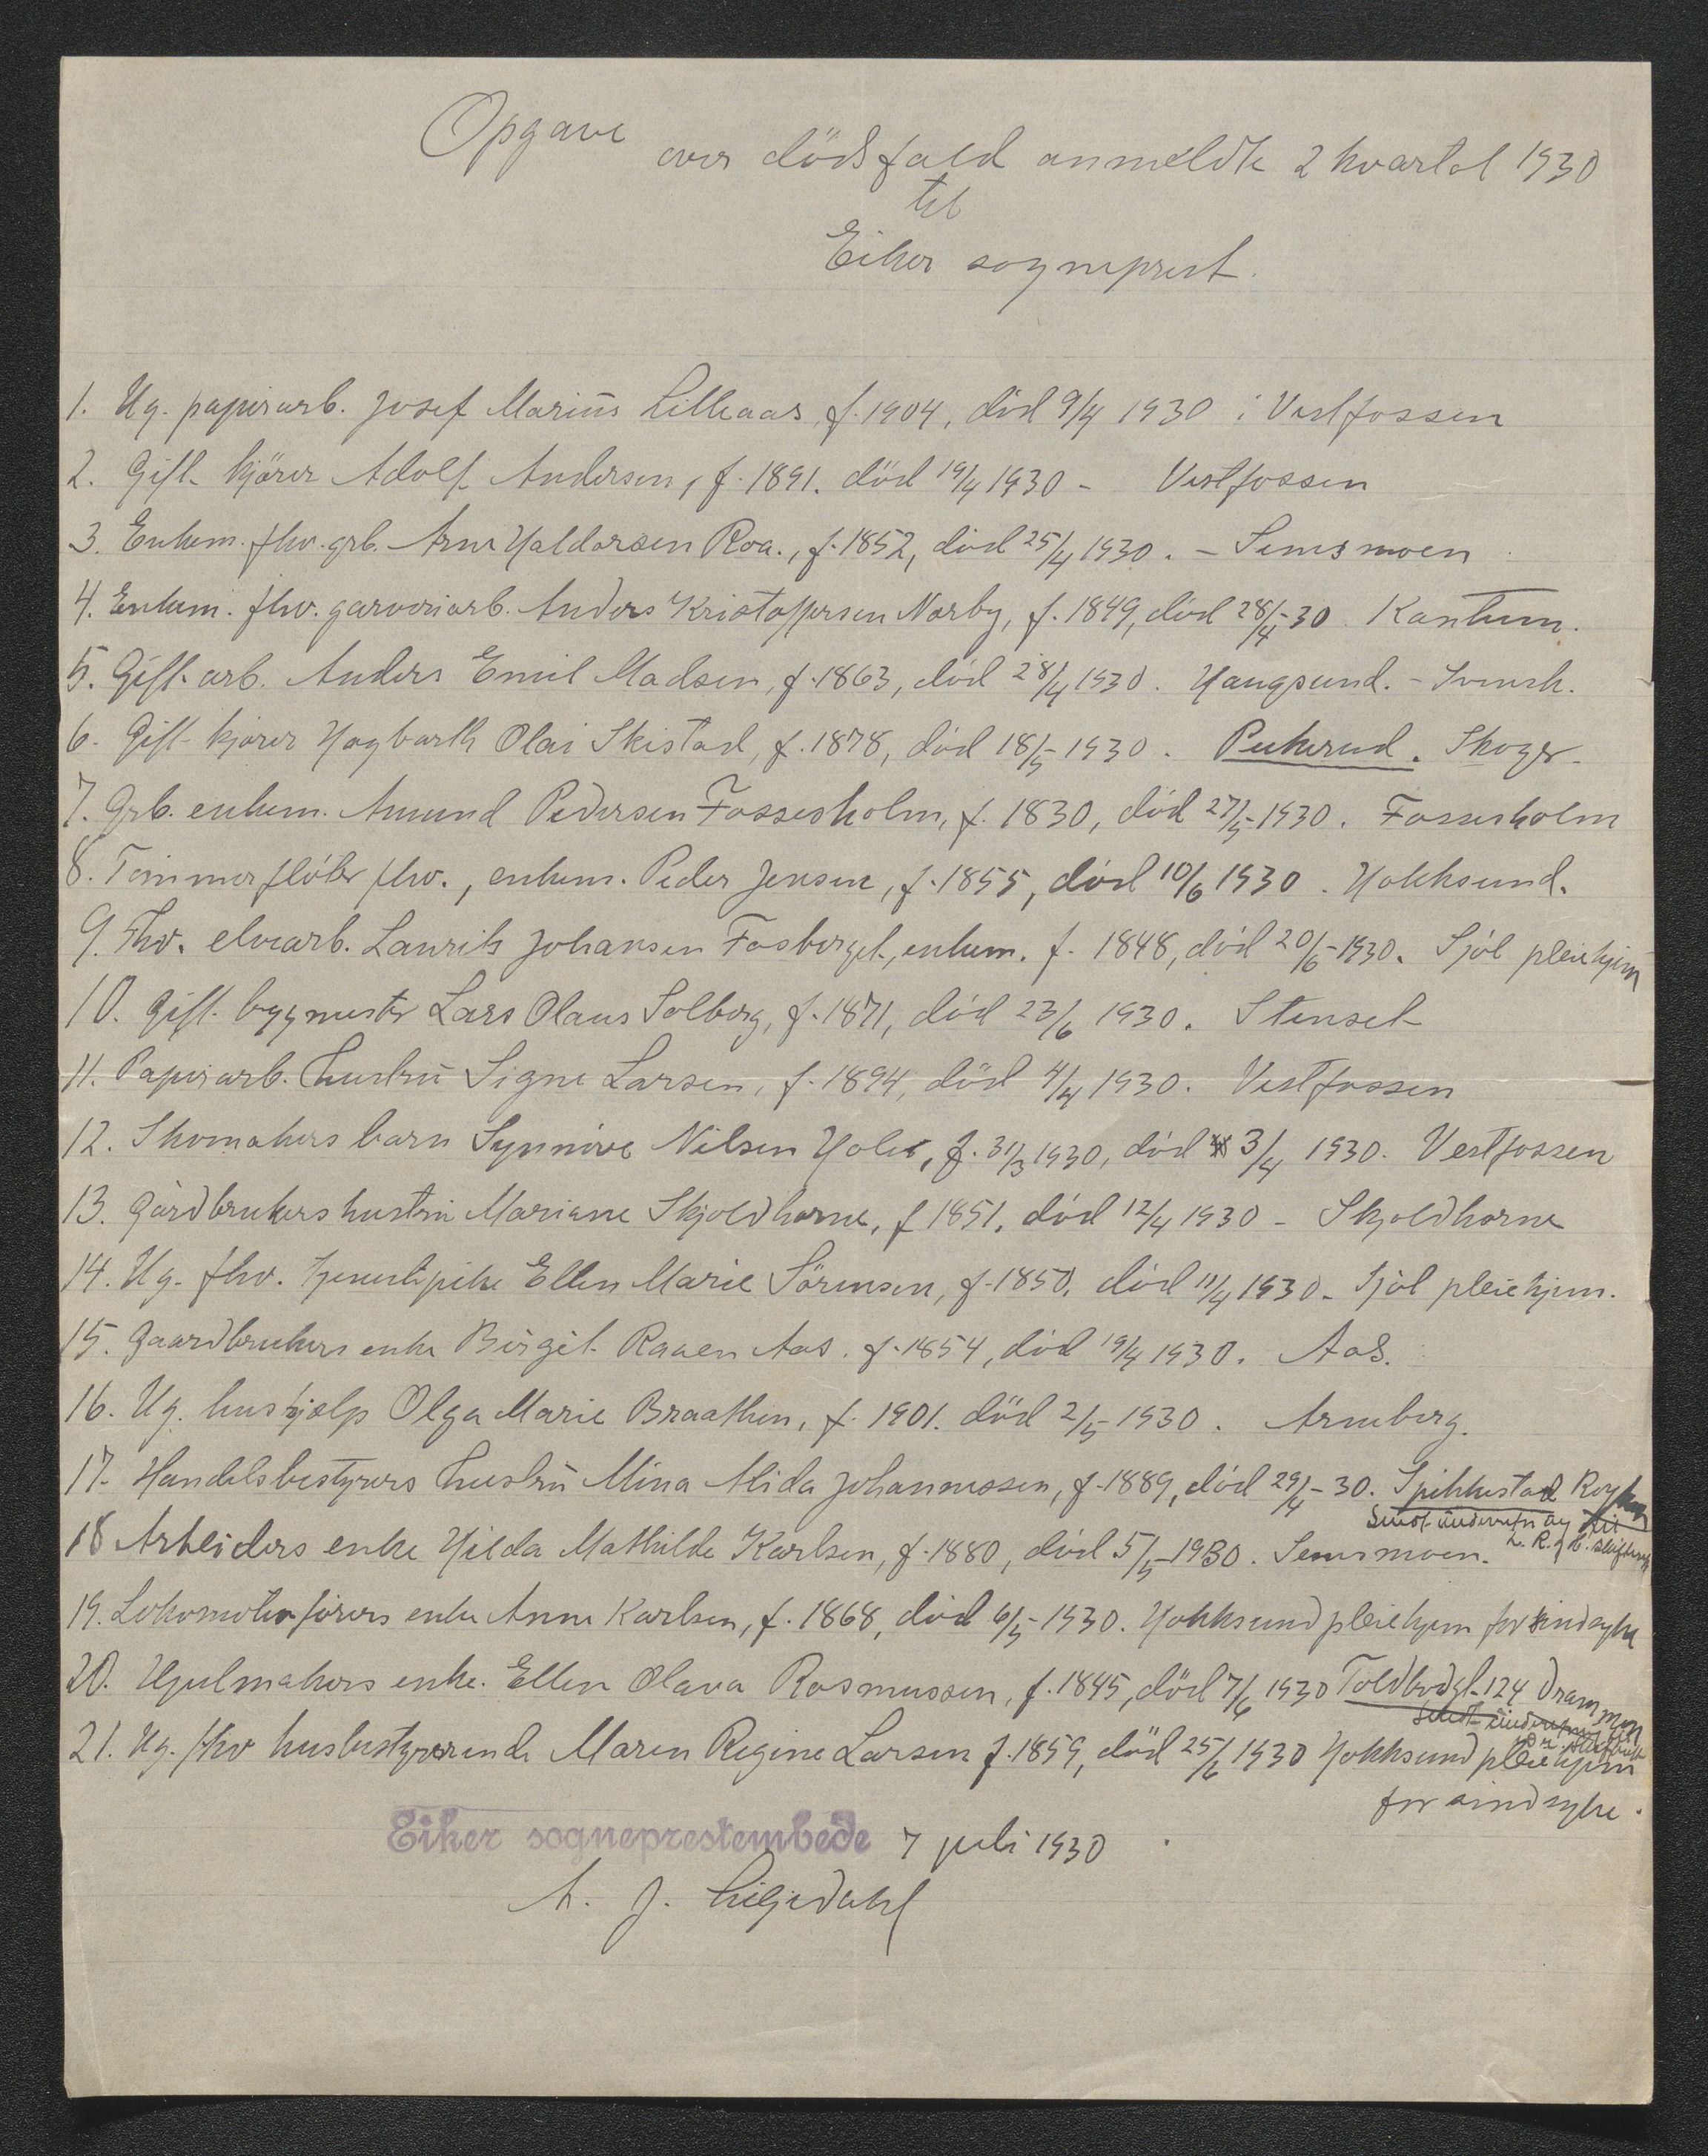 Opgave
over dödsfald anmeldte 2 kvartal 1930
til
Eiker sogneprest.
1. Ug. papirarb. Josef Marius Lilleaas, f. 1904, död 9/4 1930 i Vestfossen
2. Gift kjörer Adolf Andersen, f. 1891. död 19/4 1930 - Vestfossen
3. Enkem. fhv. grb. Arne Haldorsen Roa., f. 1852, död 25/4 1930. - Semsmoen
4. Enkem. fhv. garveriarb. Anders Kristoffersen Norby, f. 1849, död 28/4-30. Kantum.
5. Gift arb. Anders Emil Madsen, f. 1863, död 28/4 1930. Haugsund. - Svensk.
6. Gift kjører Hagbarth Olai Skistad, f. 1878, død 18/5-1930. Pukerud. Skoger
7. Grb. enkem. Amund Pedersen Fossesholm, f. 1830, död 27/5-1930. Fossesholm
8. Tömmerfløter fhv., enkem. Peder Jensen, f. 1855, död 10/6 1930. Hokksund.
9. Fhv. elvearb. Laurits Johansen Fosberget, enkem. f. 1848, död 20/6-1930. Sjöl pleiehjem
10. Gift. bygmester Lars Olaus Solberg, f. 1871, död 23/6 1930. Stenset
11. Papirarb. hustru Signe Larsen, f. 1894, död 4/4 1930. Vestfossen
12. Skomakers barn Synnöve Nilsen, f. 31/3 1930, död 3/4 1930. Vestfossen
13. Gårdbrukers hustru Mariane Skjoldhorne, f 1851. död 12/4 1930 - Skjoldhorne
14. Ug. fhv. tjenestepike Ellen Marie Sörensen, f. 1850. död 11/4 1930. Sjöl pleiehjem.
15. Gaardbrukers enke Birgit Raaen Aas. f. 1854, död 19/4 1930. Aas.
16. Ug. hushjælp Olga Marie Braathen, f. 1901. död 2/5-1930. Arneberg.
17. Handelsbestyrers hustru Mina Alida Johannessen, f. 1889, död 29/4-30. Spikkestad Røyken
Sendt underretning til
18 Arbeiders enke Hilda Mathilde Karlsen, f. 1880, död 5/5-1930. Semsmoen. L. R. g H. skifterett
19. Lokomotivførers enke Anne Karlsen, f. 1868, död 6/5-1930. Hokksund pleiehjem for sindsyke
20. Hjulmakers enke. Ellen Olava Rasmussen, f. 1845, död 7/6 1930 Toldbodgt. 124 Drammen
Sendt underretning til
21. Ug. fhv husbestyrerende Maren Regine Larsen f. 1859, död 25/6 1930 Hokksund pleiehjem
for sindsyke.
Eiker sogneprestembede 7 juli 1930
A. J. Liljedahl